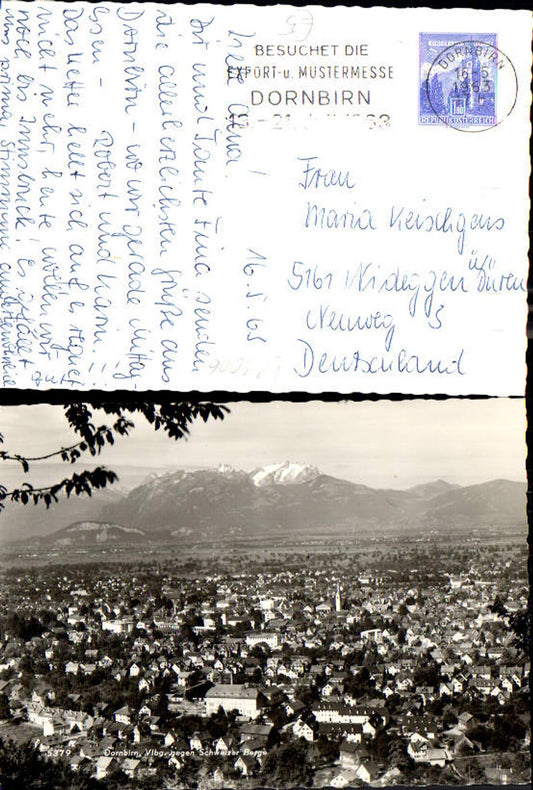 BESUCHET DIE
EXPORT- u. MUSTERMESSE
DORNBIRN
DORNBIRN
1963
REPUBLIK ÖSTERREICH
16. 5. 63
Dir und Tante Tina senden
die allerherzlichsten Grüße aus
Dornbirn - wo wir gerade Mittag-
essen - Robert und Karin!!!
Das Wetter hellt sich auf, es regnet
nicht mehr, heute wollen wir
noch bis Innsbruck! Es gefällt
uns prima, Stimmung
Frau
Maria Keischgens
5161 Nideggen ü/Düren
Neuweg 3
Deutschland
5879 Dornbirn, Vlbg. gegen Schweizer Berge